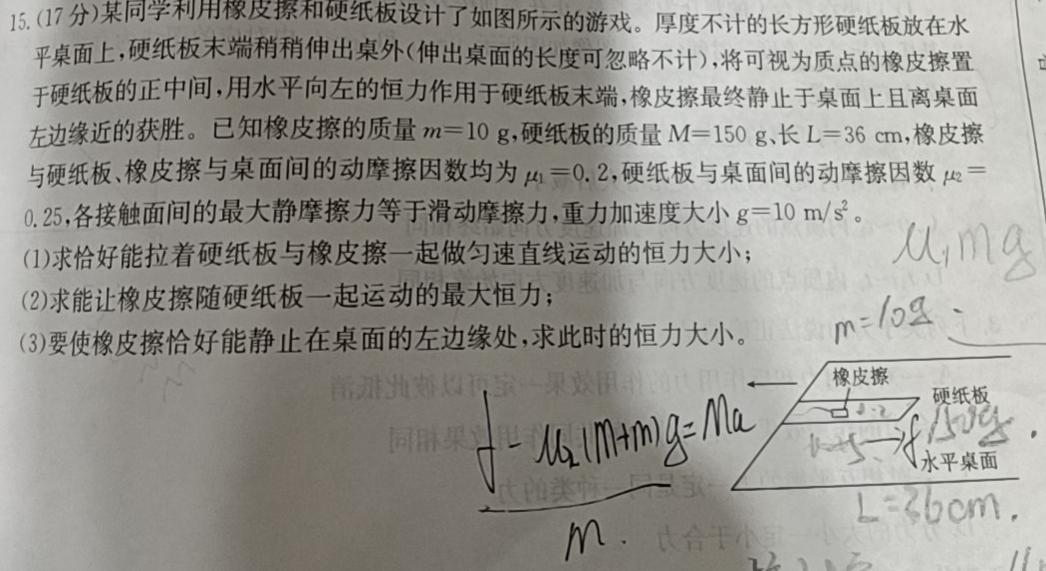 15.(17分)某同学利用橡皮擦和硬纸板设计了如图所示的游戏。厚度不计的长方形硬纸板放在水
平桌面上,硬纸板末端稍稍伸出桌外(伸出桌面的长度可忽略不计),将可视为质点的橡皮擦置
于硬纸板的正中间,用水平向左的恒力作用于硬纸板末端,橡皮擦最终静止于桌面上且离桌面
左边缘近的获胜。已知橡皮擦的质量m=10 g,硬纸板的质量M=150 g、长L=36 cm,橡皮擦
与硬纸板、橡皮擦与桌面间的动摩擦因数均为μ₁=0.2,硬纸板与桌面间的动摩擦因数μ₂=
0.25,各接触面间的最大静摩擦力等于滑动摩擦力,重力加速度大小g=10 m/s²。
(1)求恰好能拉着硬纸板与橡皮擦一起做匀速直线运动的恒力大小;
μ₁mg
(2)求能让橡皮擦随硬纸板一起运动的最大恒力;
(3)要使橡皮擦恰好能静止在桌面的左边缘处,求此时的恒力大小。
m=10g
橡皮擦
硬纸板
150g
水平桌面
f-μ₂(M+m)g=Ma
m.
L=36cm.